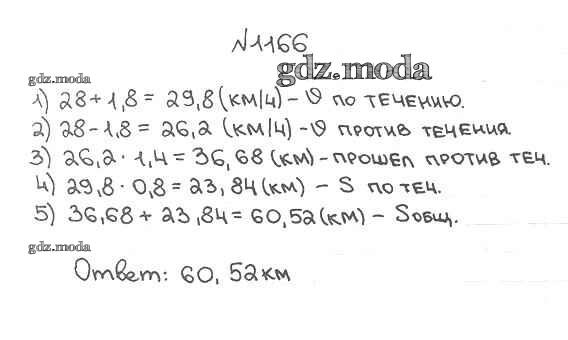 №1166
gdz.moda
gdz.moda
1) 28+1,8 = 29,8(км/ч) – υ по течению.
2) 28-1,8 = 26,2 (км/ч) -υ против течения.
3) 26,2 · 1,4 = 36,68 (км) - прошел против теч.
4) 29,8 · 0,8 = 23,84(км) – S по теч.
5) 36,68 + 23,84 = 60,52(км) – Sобщ.
gdz.moda
Ответ: 60,52км